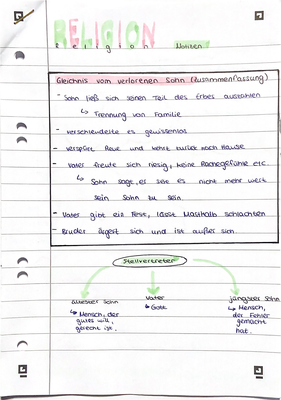 RELIGION
Religion Notizen
Gleichnis vom verlorenen Sohn (Zusammenfassung)
- Sohn ließ sich seinen Teil des Erbes auszahlen
↳ Trennung von Familie
- verschleuderte es gewissenlos
- verspürt Reue und kehrt zurück nach Hause
- Vater freute sich riesig, keine Rachegefühle etc.
↳ Sohn sagt, er sei es nicht mehr wert
sein Sohn zu sein
- Vater gibt ein Fest, lässt Mastkalb schlachten
- Bruder ärgert sich und ist außer sich
Stellvertreter
ältester Sohn
↳ Mensch, der
gutes will,
gerecht ist.
Vater
↳ Gott
jüngster Sohn
↳ Mensch,
der Fehler
gemacht
hat.